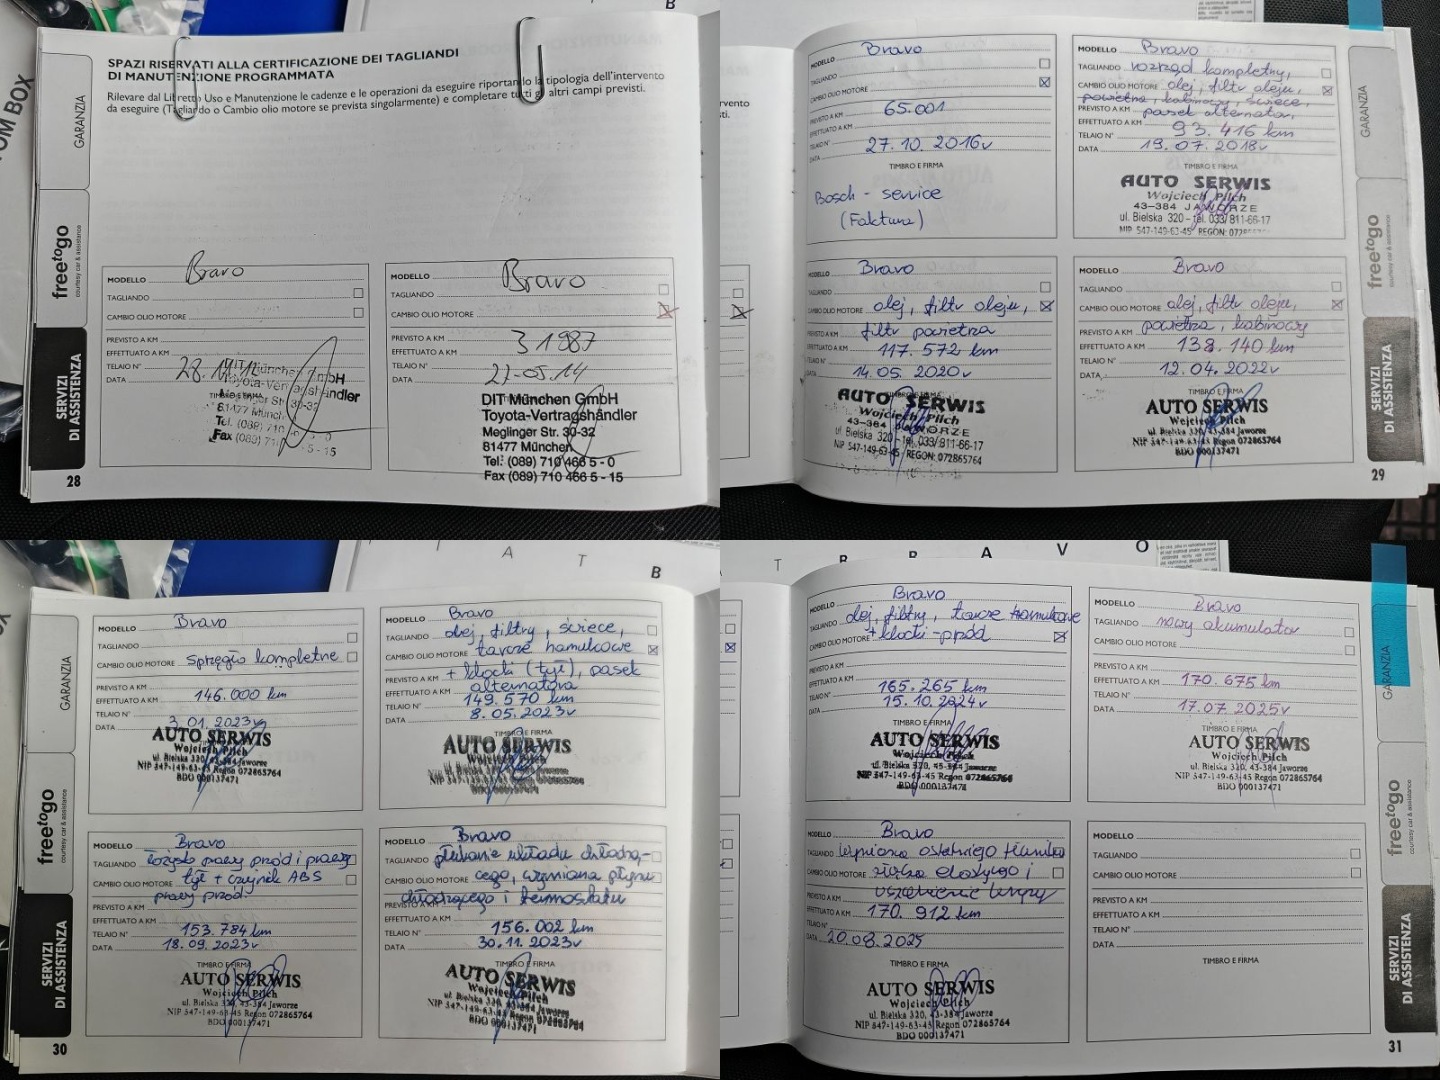 B
OM BOX
GARANZIA
freetogo
courtesy car & assistance
SERVIZI
DI ASSISTENZA
SPAZI RISERVATI ALLA CERTIFICAZIONE DEI TAGLIANDI
DI MANUTENZIONE PROGRAMMATA
Rilevare dal Libretto Uso e Manutenzione le cadenze e le operazioni da eseguire riportando la tipologia dell'intervento
da eseguire (Tagliando o Cambio olio motore se prevista singolarmente) e completare tutti gli altri campi previsti.
MODELLO Bravo
TAGLIANDO
CAMBIO OLIO MOTORE
PREVISTO A KM
EFFETTUATO A KM
TELAIO N°
DATA
Fax (089)
MODELLO Bravo
TAGLIANDO
CAMBIO OLIO MOTORE
PREVISTO A KM
EFFETTUATO A KM 31987
TELAIO N°
DATA 27-05-14
DIT München GmbH
Toyota-Vertragshändler
Meglinger Str. 30-32
81477 München
Tel: (089) 710 466 5 - 0
Fax (089) 710 466 5 - 15
28
MODELLO Bravo
TAGLIANDO
CAMBIO OLIO MOTORE
PREVISTO A KM 65.001
EFFETTUATO A KM
TELAIO N° 27.10.2016r
DATA
TIMBRO E FIRMA
Bosch - service
(Faktura)
MODELLO Bravo
TAGLIANDO rozrząd kompletny,
CAMBIO OLIO MOTORE olej, filtr oleju,
powietrza, kabinowy, świece,
PREVISTO A KM pasek alternator,
EFFETTUATO A KM 93.416 km
TELAIO N°
DATA 19.07.2018r
TIMBRO E FIRMA
AUTO SERWIS
Wojciech Pilch
43-384 JAWORZE
ul. Bielska 320 - tel. 033/ 811-66-17
NIP 547-149-63-45 REGON:
MODELLO Bravo
TAGLIANDO
CAMBIO OLIO MOTORE olej, filtr oleju,
PREVISTO A KM filtr powietrza
EFFETTUATO A KM 117.572 km
TELAIO N°
DATA 14.05.2020r
AUTO SERWIS
Wojciech Pilch
43-384 JAWORZE
ul. Bielska 320 - tel. 033/ 811-66-17
NIP 547-149-63-45 REGON: 072865764
MODELLO Bravo
TAGLIANDO
CAMBIO OLIO MOTORE olej, filtr oleju,
PREVISTO A KM powietrza, kabinowy
EFFETTUATO A KM 138.140 km
TELAIO N°
DATA 12.04.2022r
TIMBRO E FIRMA
AUTO SERWIS
Wojciech Pilch
ul. Bielska 320, 43-384 Jaworze
NIP 547-149-63-45 Regon 072865764
BDO 000137471
GARANZIA
freetogo
courtesy car & assistance
SERVIZI
DI ASSISTENZA
29
A T B
GARANZIA
freetogo
courtesy car & assistance
SERVIZI
DI ASSISTENZA
MODELLO Bravo
TAGLIANDO
CAMBIO OLIO MOTORE sprzęgło kompletne
PREVISTO A KM
EFFETTUATO A KM 146.000 km
TELAIO N°
DATA 3.01.2023r
AUTO SERWIS
Wojciech Pilch
ul. Bielska 320, 43-384 Jaworze
NIP 547-149-63-45 Regon 072865764
BDO 000137471
MODELLO Bravo
TAGLIANDO olej, filtry, świece,
CAMBIO OLIO MOTORE tarcze hamulcowe
PREVISTO A KM + klocki (tył), pasek
alternatora
EFFETTUATO A KM 149.570 km
TELAIO N°
DATA 8.05.2023r
AUTO SERWIS
Wojciech Pilch
MODELLO Bravo
TAGLIANDO łożysko prawy przód i prawy
CAMBIO OLIO MOTORE tył + czujnik ABS
PREVISTO A KM prawy przód.
EFFETTUATO A KM
TELAIO N° 153.784 km
DATA 18.09.2023r
TIMBRO E FIRMA
AUTO SERWIS
Wojciech Pilch
ul. Bielska 320, 43-384 Jaworze
NIP 547-149-63-45 Regon 072865764
BDO 000137471
MODELLO Bravo
TAGLIANDO płukanie układu chłodzą-
CAMBIO OLIO MOTORE cego, wymiana płynu
PREVISTO A KM chłodzącego i termostatu
EFFETTUATO A KM
TELAIO N° 156.002 km
DATA 30.11.2023r
TIMBRO E FIRMA
AUTO SERWIS
Wojciech Pilch
ul. Bielska 320, 43-384 Jaworze
BDO 000137471
30
T B R A V O
MODELLO Bravo
TAGLIANDO olej, filtry, tarcze hamulcowe
CAMBIO OLIO MOTORE + klocki - przód
PREVISTO A KM
EFFETTUATO A KM 165.265 km
TELAIO N° 15.10.2024r
DATA
TIMBRO E FIRMA
AUTO SERWIS
Wojciech Pilch
ul. Bielska 320, 43-384 Jaworze
NIP 547-149-63-45 Regon 072865764
BDO 000137471
MODELLO Bravo
TAGLIANDO nowy akumulator
CAMBIO OLIO MOTORE
PREVISTO A KM
EFFETTUATO A KM 170.675 km
TELAIO N°
DATA 17.07.2025r
TIMBRO E FIRMA
AUTO SERWIS
Wojciech Pilch
ul. Bielska 320, 43-384 Jaworze
NIP 547-149-63-45 Regon 072865764
BDO 000137471
MODELLO Bravo
TAGLIANDO Wymiana ostatniego tłumika
CAMBIO OLIO MOTORE złącza elastycznego i
PREVISTO A KM
EFFETTUATO A KM 170.912 km
TELAIO N°
DATA 20.08.2025
TIMBRO E FIRMA
AUTO SERWIS
Wojciech Pilch
ul. Bielska 320, 43-384 Jaworze
NIP 547-149-63-45 Regon 072865764
BDO 000137471
MODELLO
TAGLIANDO
CAMBIO OLIO MOTORE
PREVISTO A KM
EFFETTUATO A KM
TELAIO N°
DATA
TIMBRO E FIRMA
GARANZIA
freetogo
courtesy car & assistance
SERVIZI
DI ASSISTENZA
31